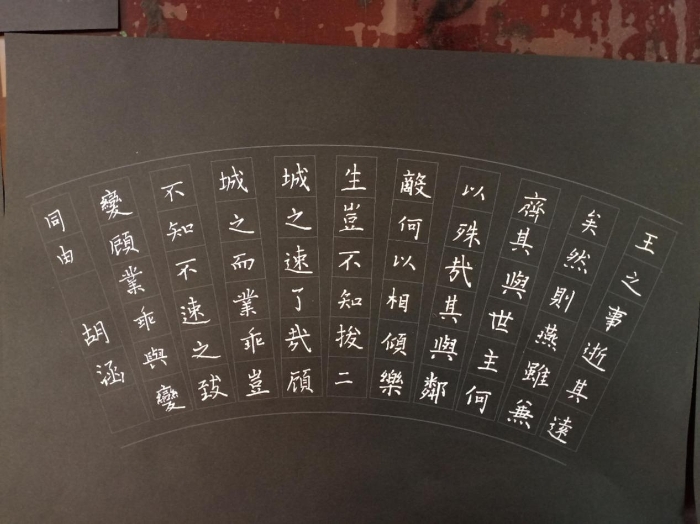 王之事逝其遠
矣然則燕雖兼
齊其與世主何
以殊哉其與鄰
敵何以相傾樂
生豈不知拔二
城之速了哉顧
城之而業乖豈
不知不速之致
變顧業乖與變
同由
胡涵